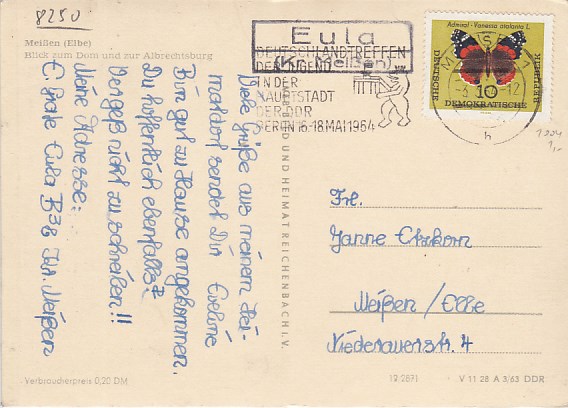 8250
Meißen (Elbe)
Blick zum Dom und zur Albrechtsburg
Eula
(Kr. Meißen)
DEUTSCHLANDTREFFEN
DER JUGEND
IN DER
HAUPTSTADT
DER DDR
BERLIN 16.-18.MAI 1964
Admiral - Vanessa atalanta L.
DEUTSCHE
DEMOKRATISCHE
REPUBLIK
10
h
Viele Grüße aus meinem Hei-
matdorf sendet Dir Eveline
Bin gut zu Hause angekommen.
Du hoffentlich ebenfalls?
Vergeß nicht zu schreiben!!
Meine Adresse:
Eula
Meißen
BILD UND HEIMAT REICHENBACH I. V.
Frl.
Janne
Meißen / Elbe
Niederauerstr. 4
Verbraucherpreis 0,20 DM
V 11 28 A 3/63 DDR